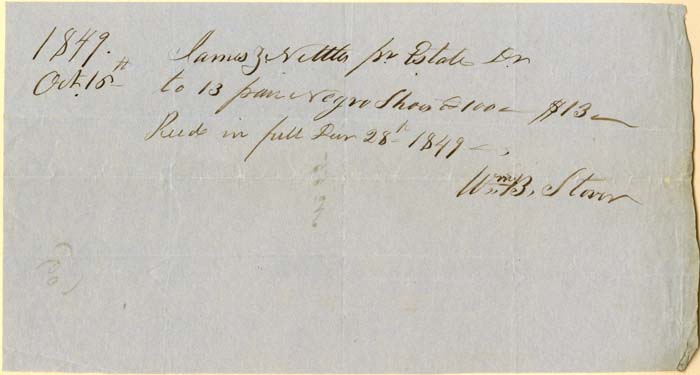 1849. James Z Nettles pr Estate Dr
Oct. 16th to 13 pair Negro Shoes @ 100 — $13 —
Recd in full Dec 28th 1849 —
Wm. B. Stover